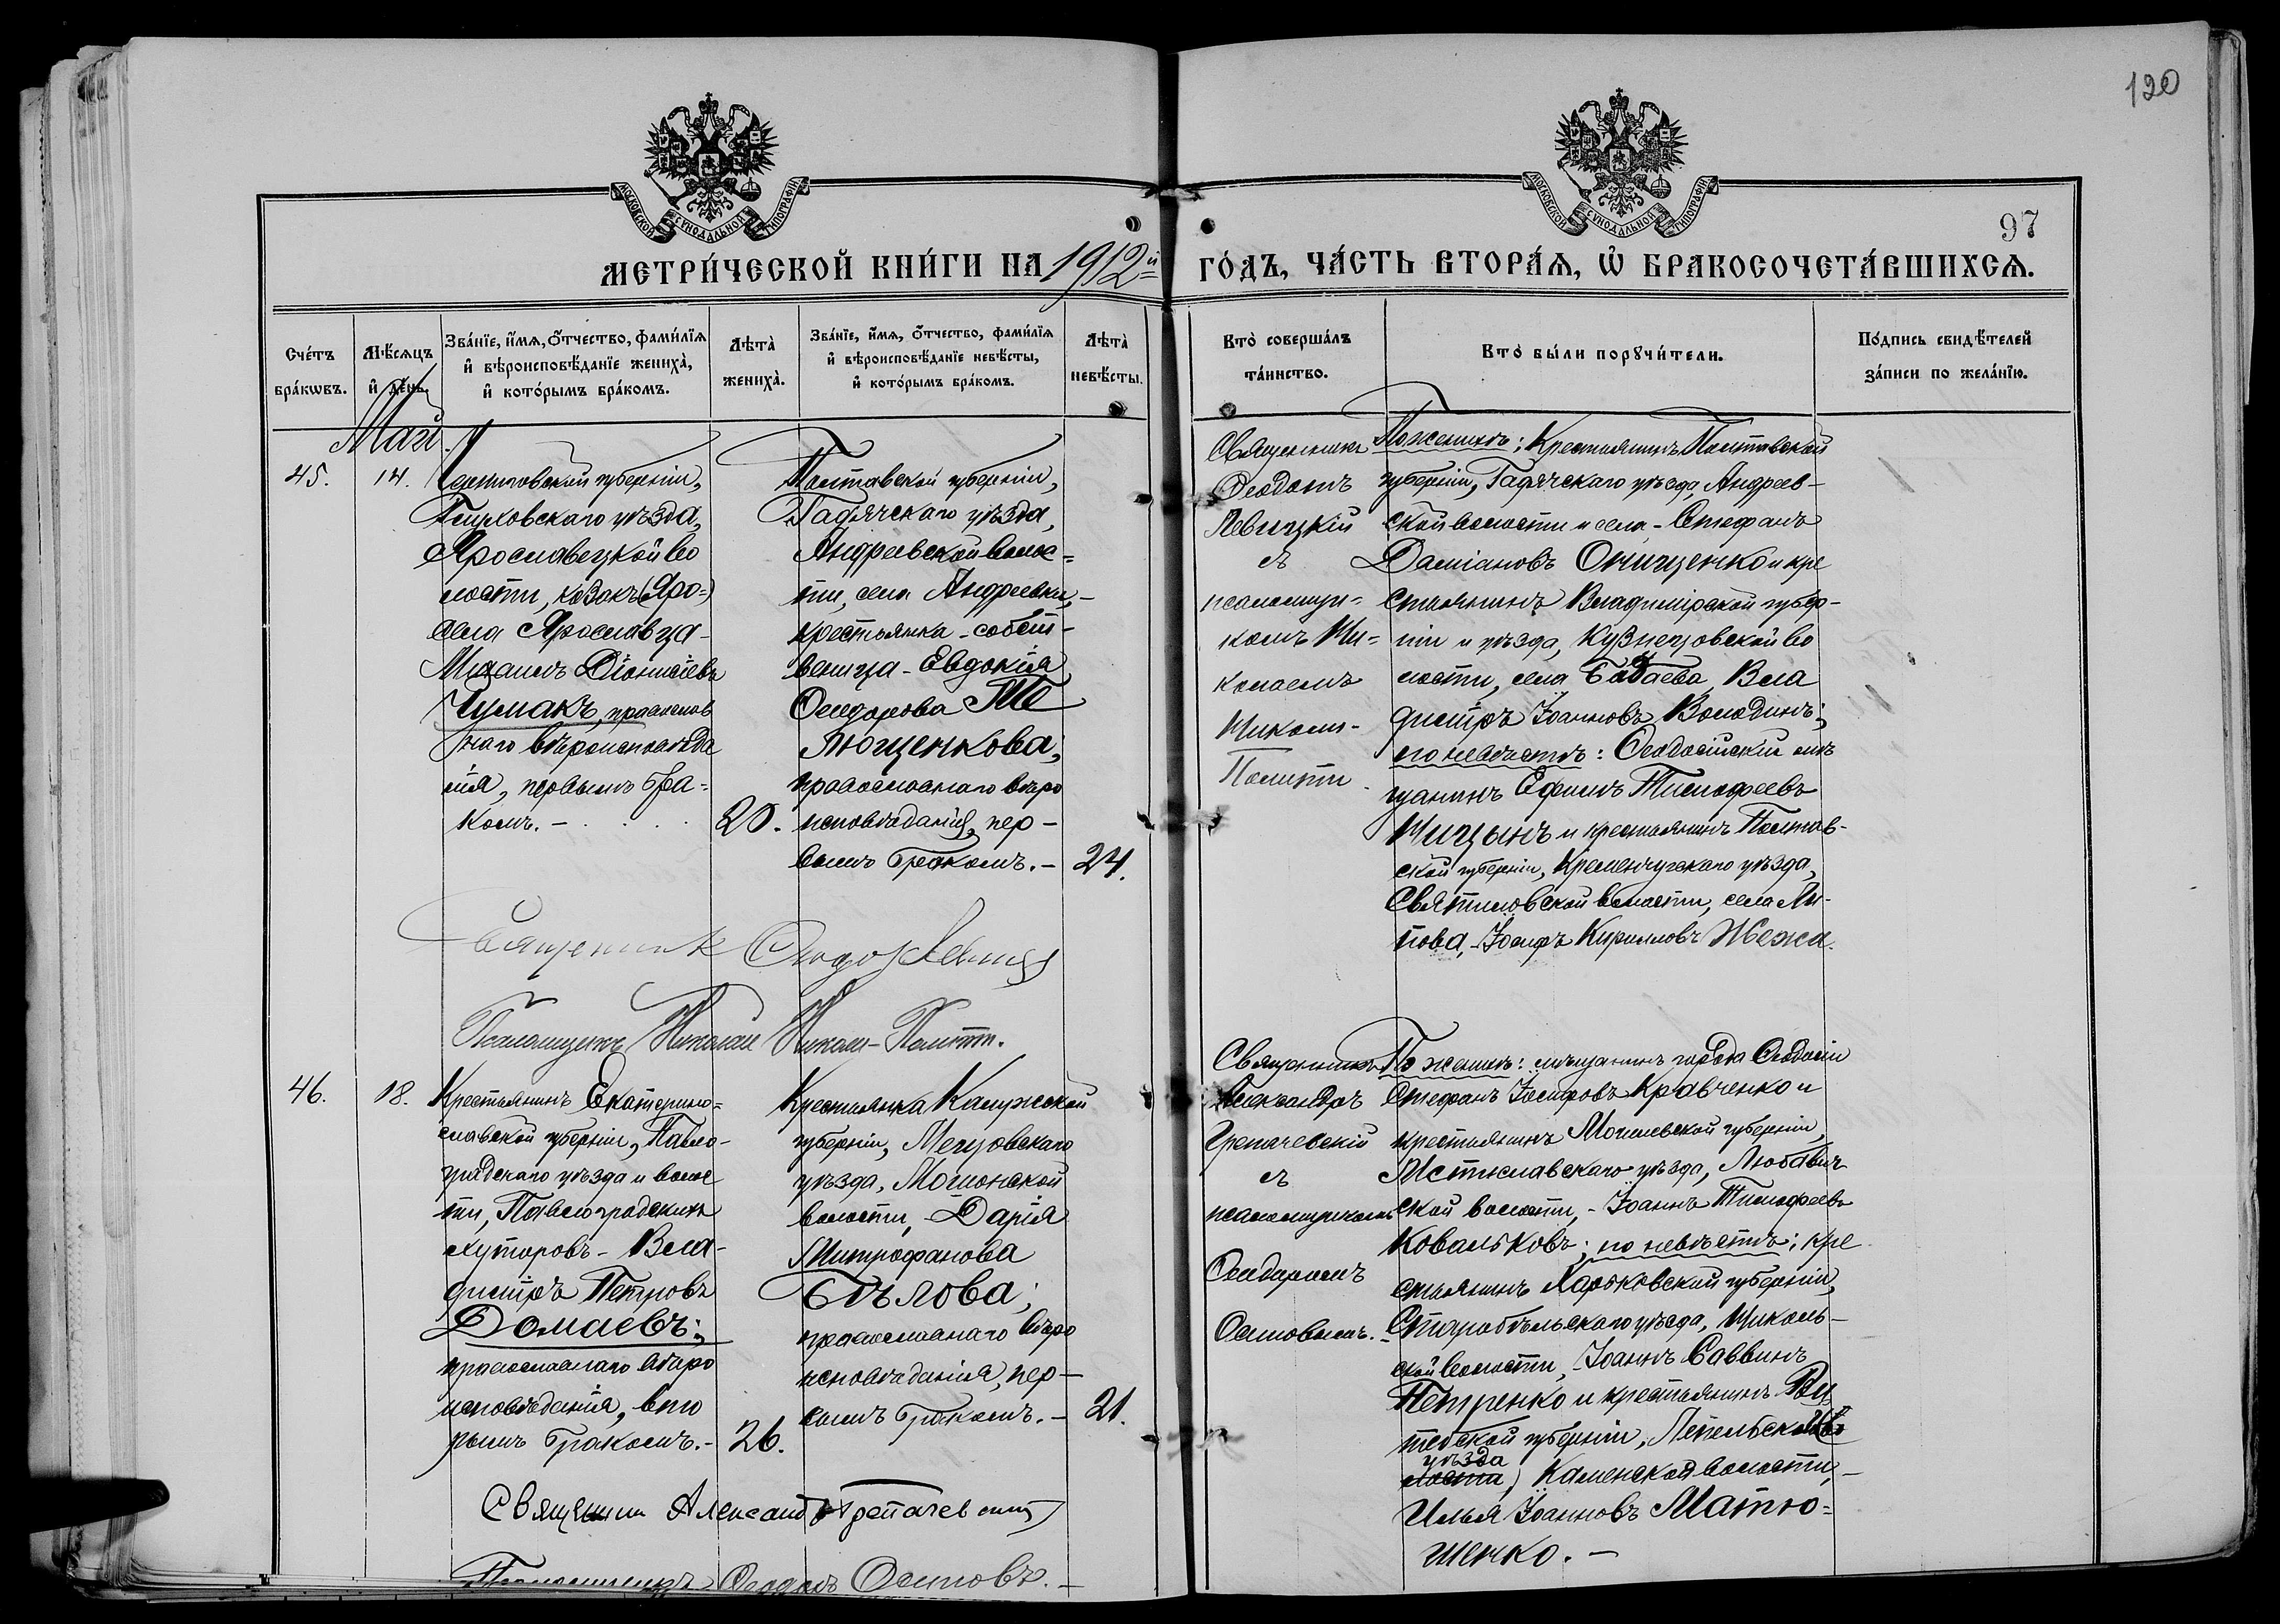 120
МОСКОВСКОЙ СѴНОДАЛЬНОЙ ТИПОГРАФІИ
МОСКОВСКОЙ СѴНОДАЛЬНОЙ ТИПОГРАФІИ
97
МЕТРИ́ЧЕСКОЙ КНИ́ГИ НА 1912й
ГО́ДЪ, ЧА́СТЬ ВТОРА́Ѧ, Ѡ҆ БРАКОСОЧЕТА́ВШИХСѦ.
Сче́тъ
бра́кѡвъ.
Мѣ́сѧцъ
и҆ де́нь.
Зва́нїе, и҆́мѧ, ѻ҆́тчество, фами́лїѧ
и҆ вѣроисповѣ́данїе жениха̀,
и҆ кото́рымъ бра́комъ.
Лѣ́та̀
жениха̀.
Зва́нїе, и҆́мѧ, ѻ҆́тчество, фами́лїѧ
и҆ вѣроисповѣ́данїе невѣ́сты,
и҆ кото́рымъ бра́комъ.
Лѣ́та̀
невѣ́сты.
Кто̀ соверша́лъ
та́инство.
Кто̀ бы́ли порꙋчи́тели.
По́дпись свидѣ́телей
за́писи по жела́нїю.
Май.
45.
14.
Черниговской губерніи,
Глуховскаго уѣзда,
Ярославецкой во
лости, козакъ (Яро=)
села Ярославца-
Михаилъ Діонисіевъ
Чумакъ, православ
наго вѣроисповѣда
нія, первымъ бра=
комъ. -
20.
Полтавской губерніи,
Гадячскаго уѣзда,
Андреевской волос=
ти, села Андреевки,-
крестьянка-собст-
венница-Евдокія
Ѳеодорова Те
Лющенкова;
православнаго вѣро
исповѣданія, пер-
вымъ бракомъ.-
24.
Священникъ
Ѳеодоръ
Левицкій
съ
псаломщи=
комъ Ни=
колаемъ
Николи-
Политти.
По женихѣ: Крестьянинъ Полтавской
губерніи, Гадячскаго уѣзда, Андреев-
ской волости и села-Стефанъ
Даміановъ Онищенко и кре
стьянинъ Владимірской губер-
ніи и уѣзда, Кузнецовской во
лости, села Бабаева, Вла
диміръ Іоанновъ Володинъ;
по невѣстѣ: Ѳеодосійскій мѣ
щанинъ Ефимъ Тимофеевъ
Ницынъ и крестьянинъ Полтав-
ской губерніи, Кременчугскаго уѣзда,
Святиловской волости, села Ли-
пова,-Іосифъ Кирилловъ Жежа.
Священникъ Ѳеодоръ Левицкій
Псаломщикъ Николай Николи-Политти.
46.
18.
Крестьянинъ Екатерино=
славской губерніи, Павло-
градскаго уѣзда и волос
ти, Павлоградскихъ
хуторовъ-Вла-
диміръ Петровъ
Домаевъ;
православнаго вѣро
исповѣданія, вто
рымъ бракомъ.-
26.
Крестьянка Калужской
губерніи, Мещовскаго
уѣзда, Мошонской
волости,-Дарія
Митрофанова
Бѣлова;
православнаго вѣро
исповѣданія, пер-
вымъ бракомъ.-
21.
Священникъ
Александръ
Трепачевскій
съ
псаломщикомъ
Ѳеодоромъ
Осиповымъ.-
По женихѣ: мѣщанинъ города Ѳеодосіи
Стефанъ Іосифовъ Кравченко и
крестьянинъ Могилевской губерніи,
Мстиславскаго уѣзда, Любавич
ской волости,-Іоаннъ Тимофеевъ
Ковальковъ; по невѣстѣ: кре
стьянинъ Харьковской губерніи,
Старобѣльскаго уѣзда, Николь-
ской волости,-Іоаннъ Саввинъ
Петренко и крестьянинъ Ви
тебской губерніи, Лепельскаго
уѣзда
лости, Каменской волости,-
Илья Іоанновъ Матю=
шенко.-
Священникъ Александръ Трепачевскій
Псаломщикъ Ѳеодоръ Осиповъ.-